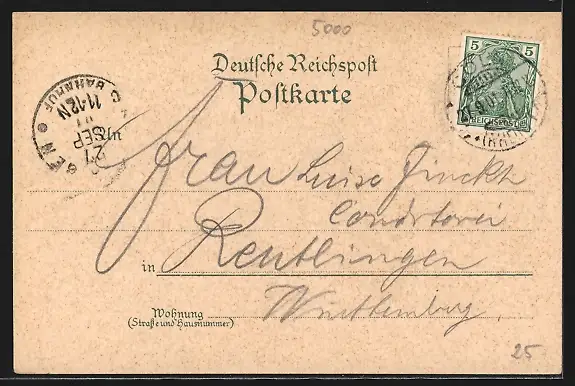 5000
Deutsche Reichspost
Postkarte
5 5
REICHSPOST
BAHNHOF
11-12N
SEP
27
An
Frau Luise Finckh
Conditorei
in Reutlingen
Württemberg.
Wohnung
(Straße und Hausnummer)
25